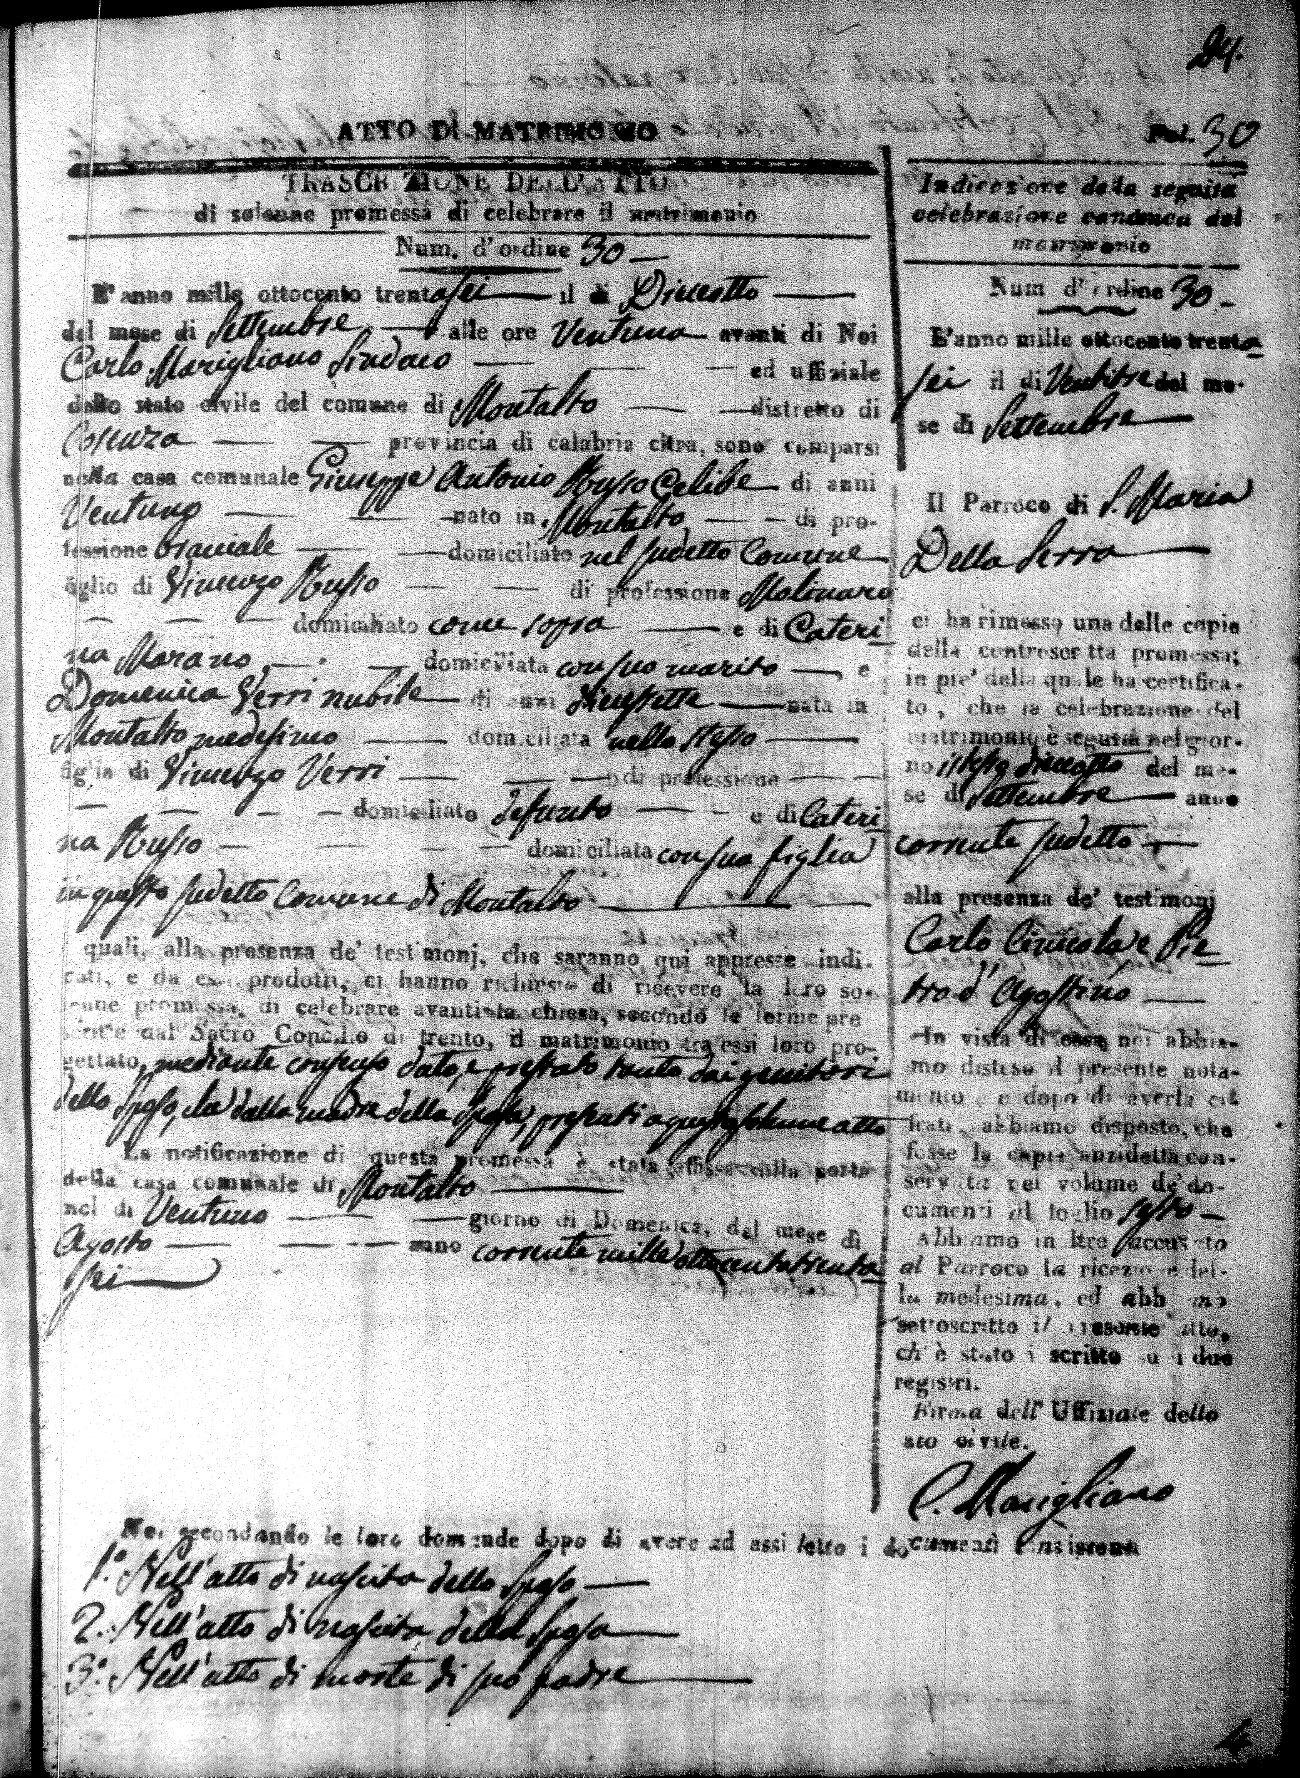 24.
ATTO DI MATRIMONIO
Fol. 30
TRASCRIZIONE DELL'ATTO
di solenne promessa di celebrare il matrimonio
Num. d'ordine 30
L'anno mille ottocento trentasei il dì Dieciotto
del mese di Settembre alle ore Ventuno avanti di Noi
Carlo Marigliano Sindaco ed uffiziale
dello stato civile del comune di Montalto distretto di
Cosenza provincia di calabria citra, sono comparsi
nella casa comunale Giuseppe Antonio Russo Celibe di anni
Ventuno nato in Montalto di pro-
fessione bracciale domiciliato nel sudetto Comune
figlio di Vincenzo Russo di professione Molinaro
domiciliato come sopra e di Cateri
na Morano domiciliata con suo marito e
Domenica Verri nubile di anni diecissette nata in
Montalto medesimo domiciliata nello stesso
figlia di Vincenzo Verri di professione
domiciliato defunto e di Cateri
na Russo domiciliata con sua figlia
in questo sudetto Comune di Montalto
quali, alla presenza de' testimonj, che saranno qui appresso indi-
cati, e da essi prodotti, ci hanno richiesto di ricevere la loro so-
lenne promessa, di celebrare avanti la chiesa, secondo le forme pre
scritte dal Sacro Concilio di trento, il matrimonio tra essi loro pro-
gettato, mediante consenso dato, e prestato tanto dai genitori
dello Sposo, che dalla madre della Sposa, presenti a quest'atto
La notificazione di questa promessa è stata affissa sulla porta
della casa comunale di Montalto
nel dì Ventuno giorno di Domenica, del mese di
Agosto anno corrente mille ottocentotrenta
sei
Indicazione della seguita
celebrazione canonica del
matrimonio
Num d'ordine 30
L'anno mille ottocento trenta
sei il dì Ventitre del me-
se di Settembre
Il Parroco di S. Maria
Della Serra
ci ha rimesso una delle copie
della controscritta promessa;
in piè della quale ha certifica-
to, che la celebrazione del
matrimonio è seguita nel gior-
no istesso dieciotto del me-
se di Settembre anno
corrente sudetto
alla presenza de' testimonj
Carlo e Pie
tro d'Agostino
In vista di essa noi abbia-
mo disteso il presente nota-
mento, e dopo di averla cif
frati, abbiamo disposto, che
fosse la copia anzidetta con-
servata nel volume de' do-
cumenti al foglio sesto
Abbiamo in oltre accusato
al Parroco la ricezione del-
la medesima, ed abbiamo
sottoscritto il presente atto,
ch'è stato iscritto su i due
registri.
Firma dell'Uffiziale dello
sto civile.
C. Marigliano
Noi secondando le loro domande dopo di avere ad essi letto i documenti consistenti
1.° Nell'atto di nascita dello Sposo
2. Nell'atto di nascita della Sposa
3.° Nell'atto di morte di suo padre
4